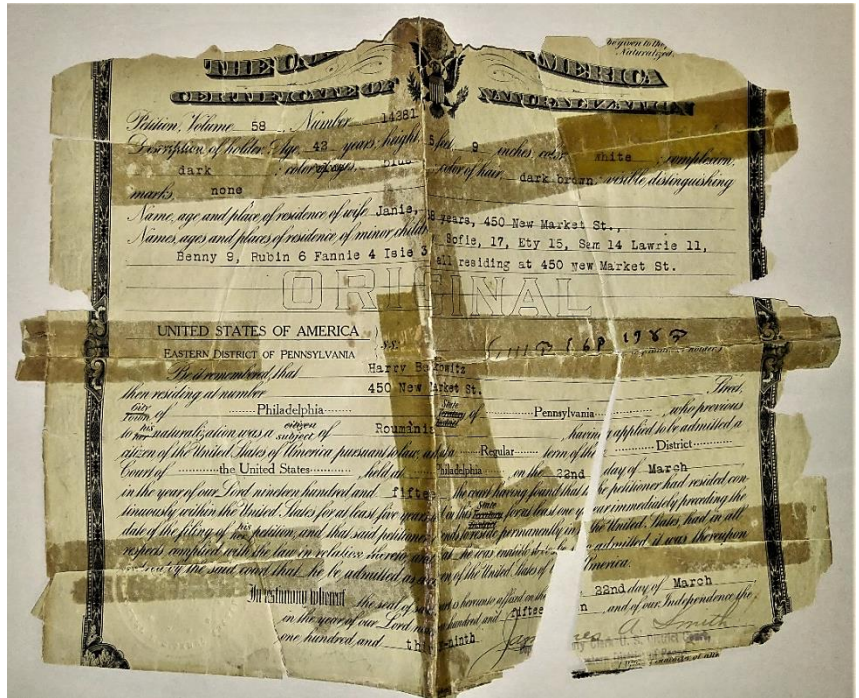 be given to the
Naturalized.
THE UN MERICA
CERTIFICATE OF NATURALIZATION
Petition, Volume 58 Number 14381
Description of holder: Age, 42 years; height, 5 feet, 9 inches; color, white; complexion,
dark; color of eyes, blue; color of hair, dark brown; visible distinguishing
marks, none
Name, age and place of residence of wife Janie, years, 450 New Market St.,
Names, ages and places of residence of minor children Sofie, 17, Ety 15, Sam 14 Lawrie 11,
Benny 9, Rubin 6 Fannie 4 Isie 3, all residing at 450 New Market St.
ORIGINAL
UNITED STATES OF AMERICA
EASTERN DISTRICT OF PENNSYLVANIA S.S.
Be it remembered, that Harry Berkowitz
then residing at number 450 New Market St. Street,
City Town of Philadelphia State Territory District of Pennsylvania, who previous
to his her naturalization was a citizen subject of Roumania, having applied to be admitted a
citizen of the United States of America pursuant to law, and at a Regular term of the District
Court of the United States held at Philadelphia on the 22nd day of March
in the year of our Lord nineteen hundred and fifteen the court having found that the petitioner had resided con-
tinuously within the United States for at least five years and in this State Territory District for at least one year immediately preceding the
date of the filing of his her petition, and that said petitioner intends to reside permanently in the United States, had in all
respects complied with the law in relation thereto, and that he was entitled to be so admitted, it was thereupon
ordered by the said court that he be admitted as a citizen of the United States of America.
In testimony whereof the seal of said court is hereunto affixed on the 22nd day of March
in the year of our Lord nineteen hundred and fifteen, and of our Independence the
one hundred and thirty-ninth
Smith
Clerk U. S. District Court,